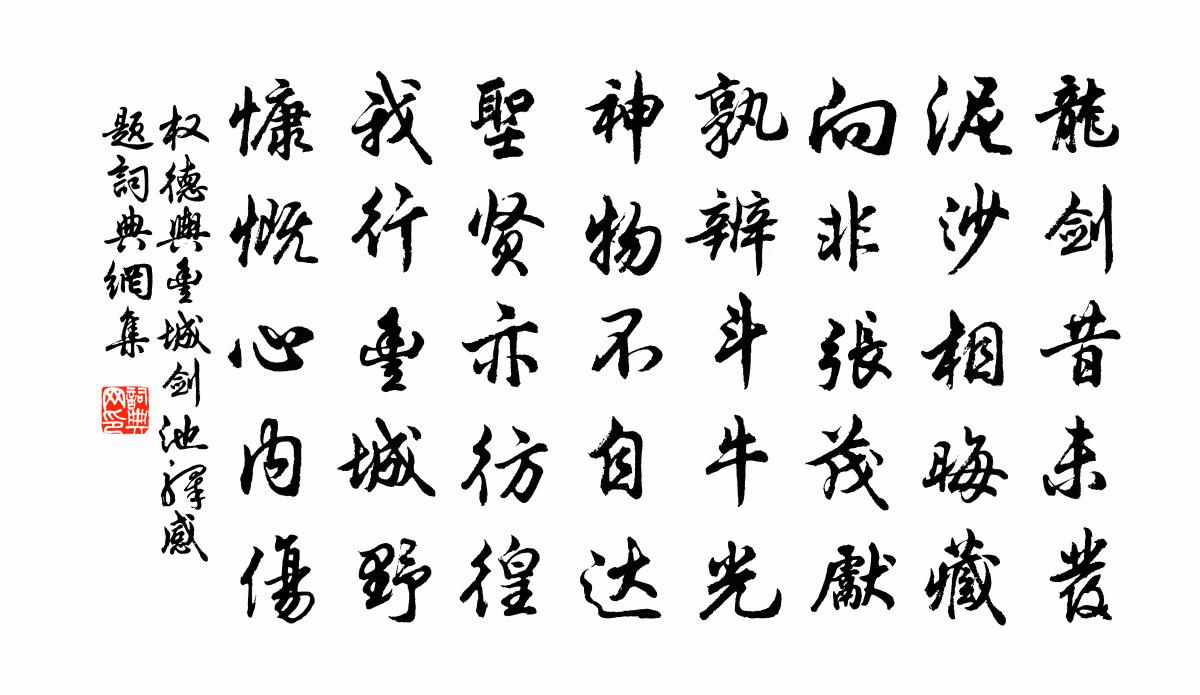 龍剑昔未發
泥沙相晦藏
向非張茂獻
孰辨斗牛光
神物不自达
聖贤亦彷徨
我行豊城野
慷慨心内傷
权德輿豊城剑池驛感
題詞典網集
詞典网印